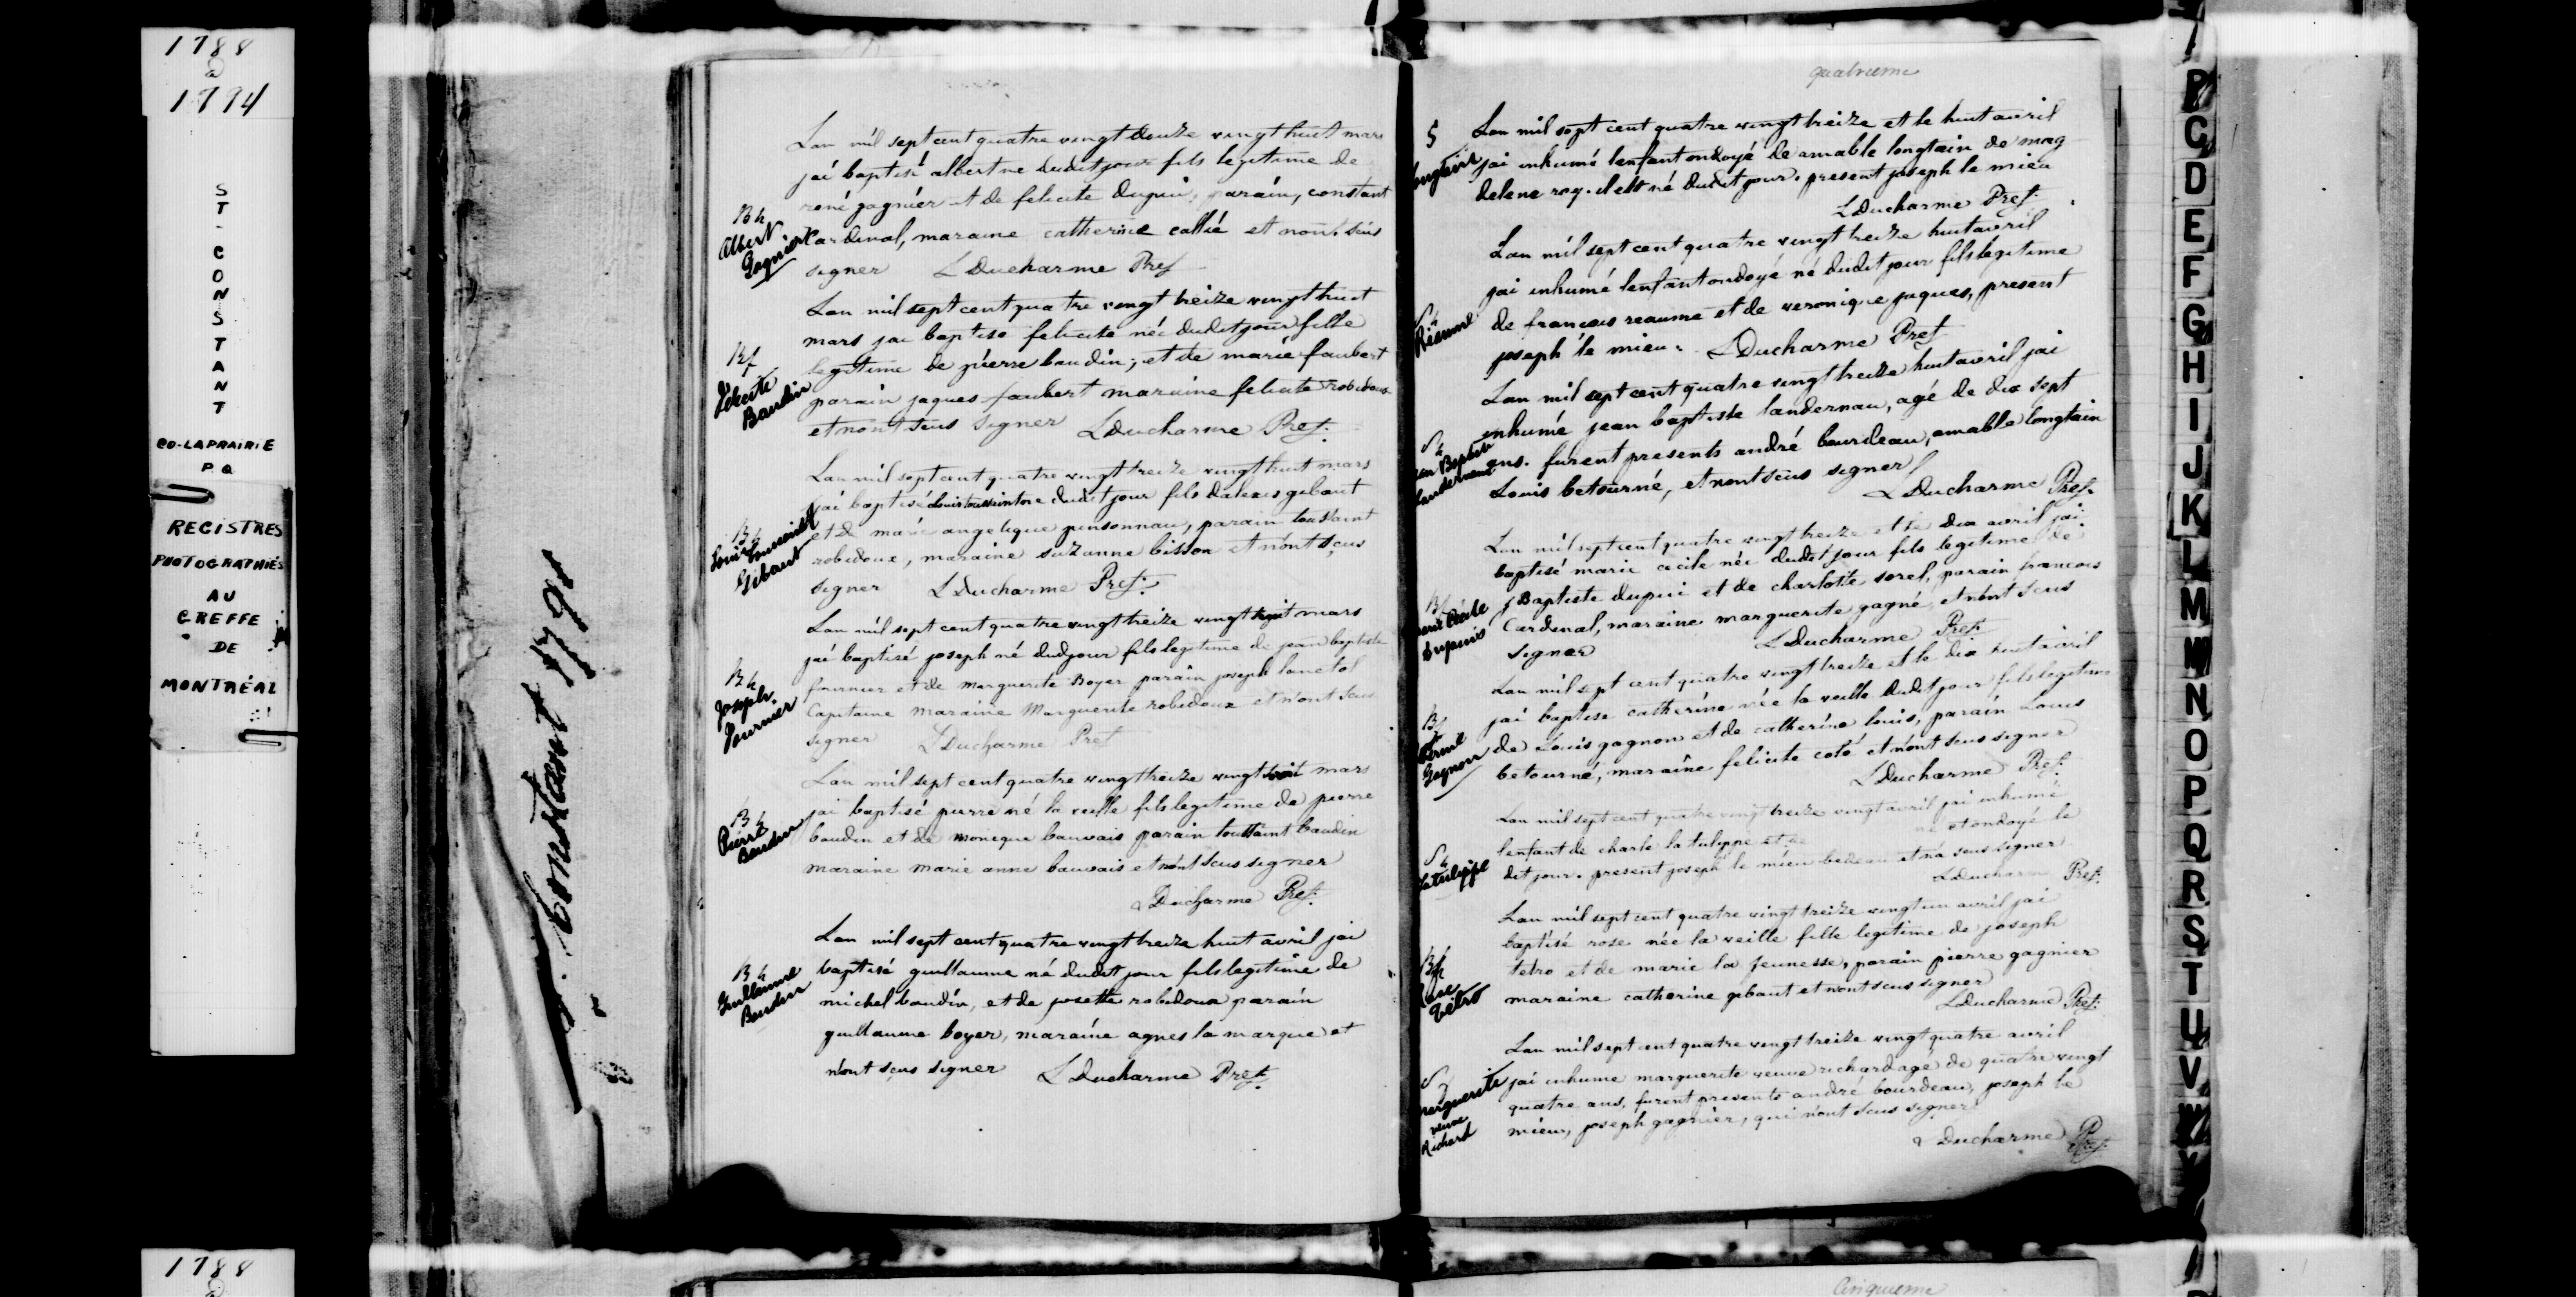 1788
à
1794
ST-CONSTANT
CO-LAPRAIRIE
P.Q
REGISTRES
PHOTOGRAPHIÉS
AU
GREFFE
DE
MONTRÉAL
1788
Constant 1791
Lan mil sept cent quatre vingt douze vingt huit mars
jai baptisé albert ne dudit jour fils legitime de
rené gagniér et de felicite dupui, parain, constant
Cardinal, maraine catherine et nont seus
signer L Ducharme Pret
B h
Albert
Gagnier
Lan mil sept cent quatre vingt treize vingt huit
mars jai baptisé felicité néé dudit jour fille
legitime de pierre baudin, et de marie faubert
parain jaques faubert maraine felicite robidoux
et nont seus signer LDucharme Pret.
Bf
Félicité
Baudin
Lan mil sept cent quatre vingt treize vingt huit mars
jai baptisé Louis toussint ne dudit jour fils dalexis gibaut
et de marie angelique pinsonnau, parain toussaint
robidoux, maraine suzanne bisson et nont seus
signer L Ducharme Pret.
B h
Louis Toussaint
Gibaut
Lan mil sept cent quatre vingt treize vingt huit mars
jai baptisé joseph né dud jour fils legitime de jean baptiste
fournier et de Marguerite Boyer parain joseph lanctol
Capitaine maraine Marguerite robidoux et nont seus
signer LDucharme Pret
B h
Joseph
Fournier
Lan mil sept cent quatre vingt treize vingt huit mars
jai baptisé pierre né la veille fils legitime de pierre
baudin et de monique bauvais parain toussaint baudin
maraine marie anne bauvais et nont seus signer
L Ducharme Pret.
B h
Pierre
Baudin
Lan mil sept cent quatre vingt treize huit avril jai
baptisé guillaume né dudit jour fils legitime de
michel baudin, et de josette robidoux parain
guillaume boyer, maraine agnes la marque et
nont seus signer L Ducharme Pret.
B h
Guillaume
Baudin
quatrieme
5
Lan mil sept cent quatre vingt treize et le huit avril
jai inhumé lenfant ondoyé de amable longtain de mag
delene roy. il est né dudit jour. present joseph le mieu
LDucharme Pret.
Longtain
Lan mil sept cent quatre vingt treize huit avril
jai inhumé lenfant ondoyé né dudit jour fils legitime
de francois reaume et de veronique jaques, present
joseph le mieu. LDucharme Pret
S h
Réaume
Lan mil sept cent quatre vingt treize huit avril jai
inhumé jean baptiste landernau, agé de dix sept
ans. furent presents andré bourdeau, amable longtain
Louis betourné, et nont seus signer
L Ducharme Pret.
S h
Jean Baptiste
Landernau
Lan mil sept cent quatre vingt treize et le dix avril jai
baptisé marie cicile néé dudit jour fils legitime de
j Baptiste dupui et de charlotte sorel, parain francois
Cardinal, maraine marguerite gagné, et nont seus
signer LDucharme Pret.
Bf
Marie Cécile
Dupuis
Lan mil sept cent quatre vingt treize et le dix huit avril
jai baptisé catherine néé la veille dudit jour fils legitime
de Louis gagnon et de catherine louis, parain Louis
betourné, maraine felicite coté et nont seus signer
LDucharme Pret.
Bf
Gagnon
Lan mil sept cent quatre vingt treize vingt avril jai inhumé
lenfant de charle la tulippe et de né et ondoyé le
dit jour. present joseph le mieu bedeau et na seus signer
LDucharme Pret.
S h
Latulippe
Lan mil sept cent quatre vingt treize vingt un avril jai
baptisé rose née la veille fille legitime de joseph
tetro et de marie la jeunesse, parain pierre gagnier
maraine catherine gibaut et nont seus signer
LDucharme Pret.
Rose
Tétro
Lan mil sept cent quatre vingt treize vingt quatre avril
jai inhume marguerite veuve richard agé de quatre vingt
quatre ans, furent presents andré bourdeau, joseph le
mieu, joseph gagnier, qui nont seus signer
L Ducharme Pret.
S f
Marguerite
veuve
Richard
Cinquieme
B
C
D
E
F
G
H
I
J
K
L
M
N
O
P
Q
R
S
T
U
V
W